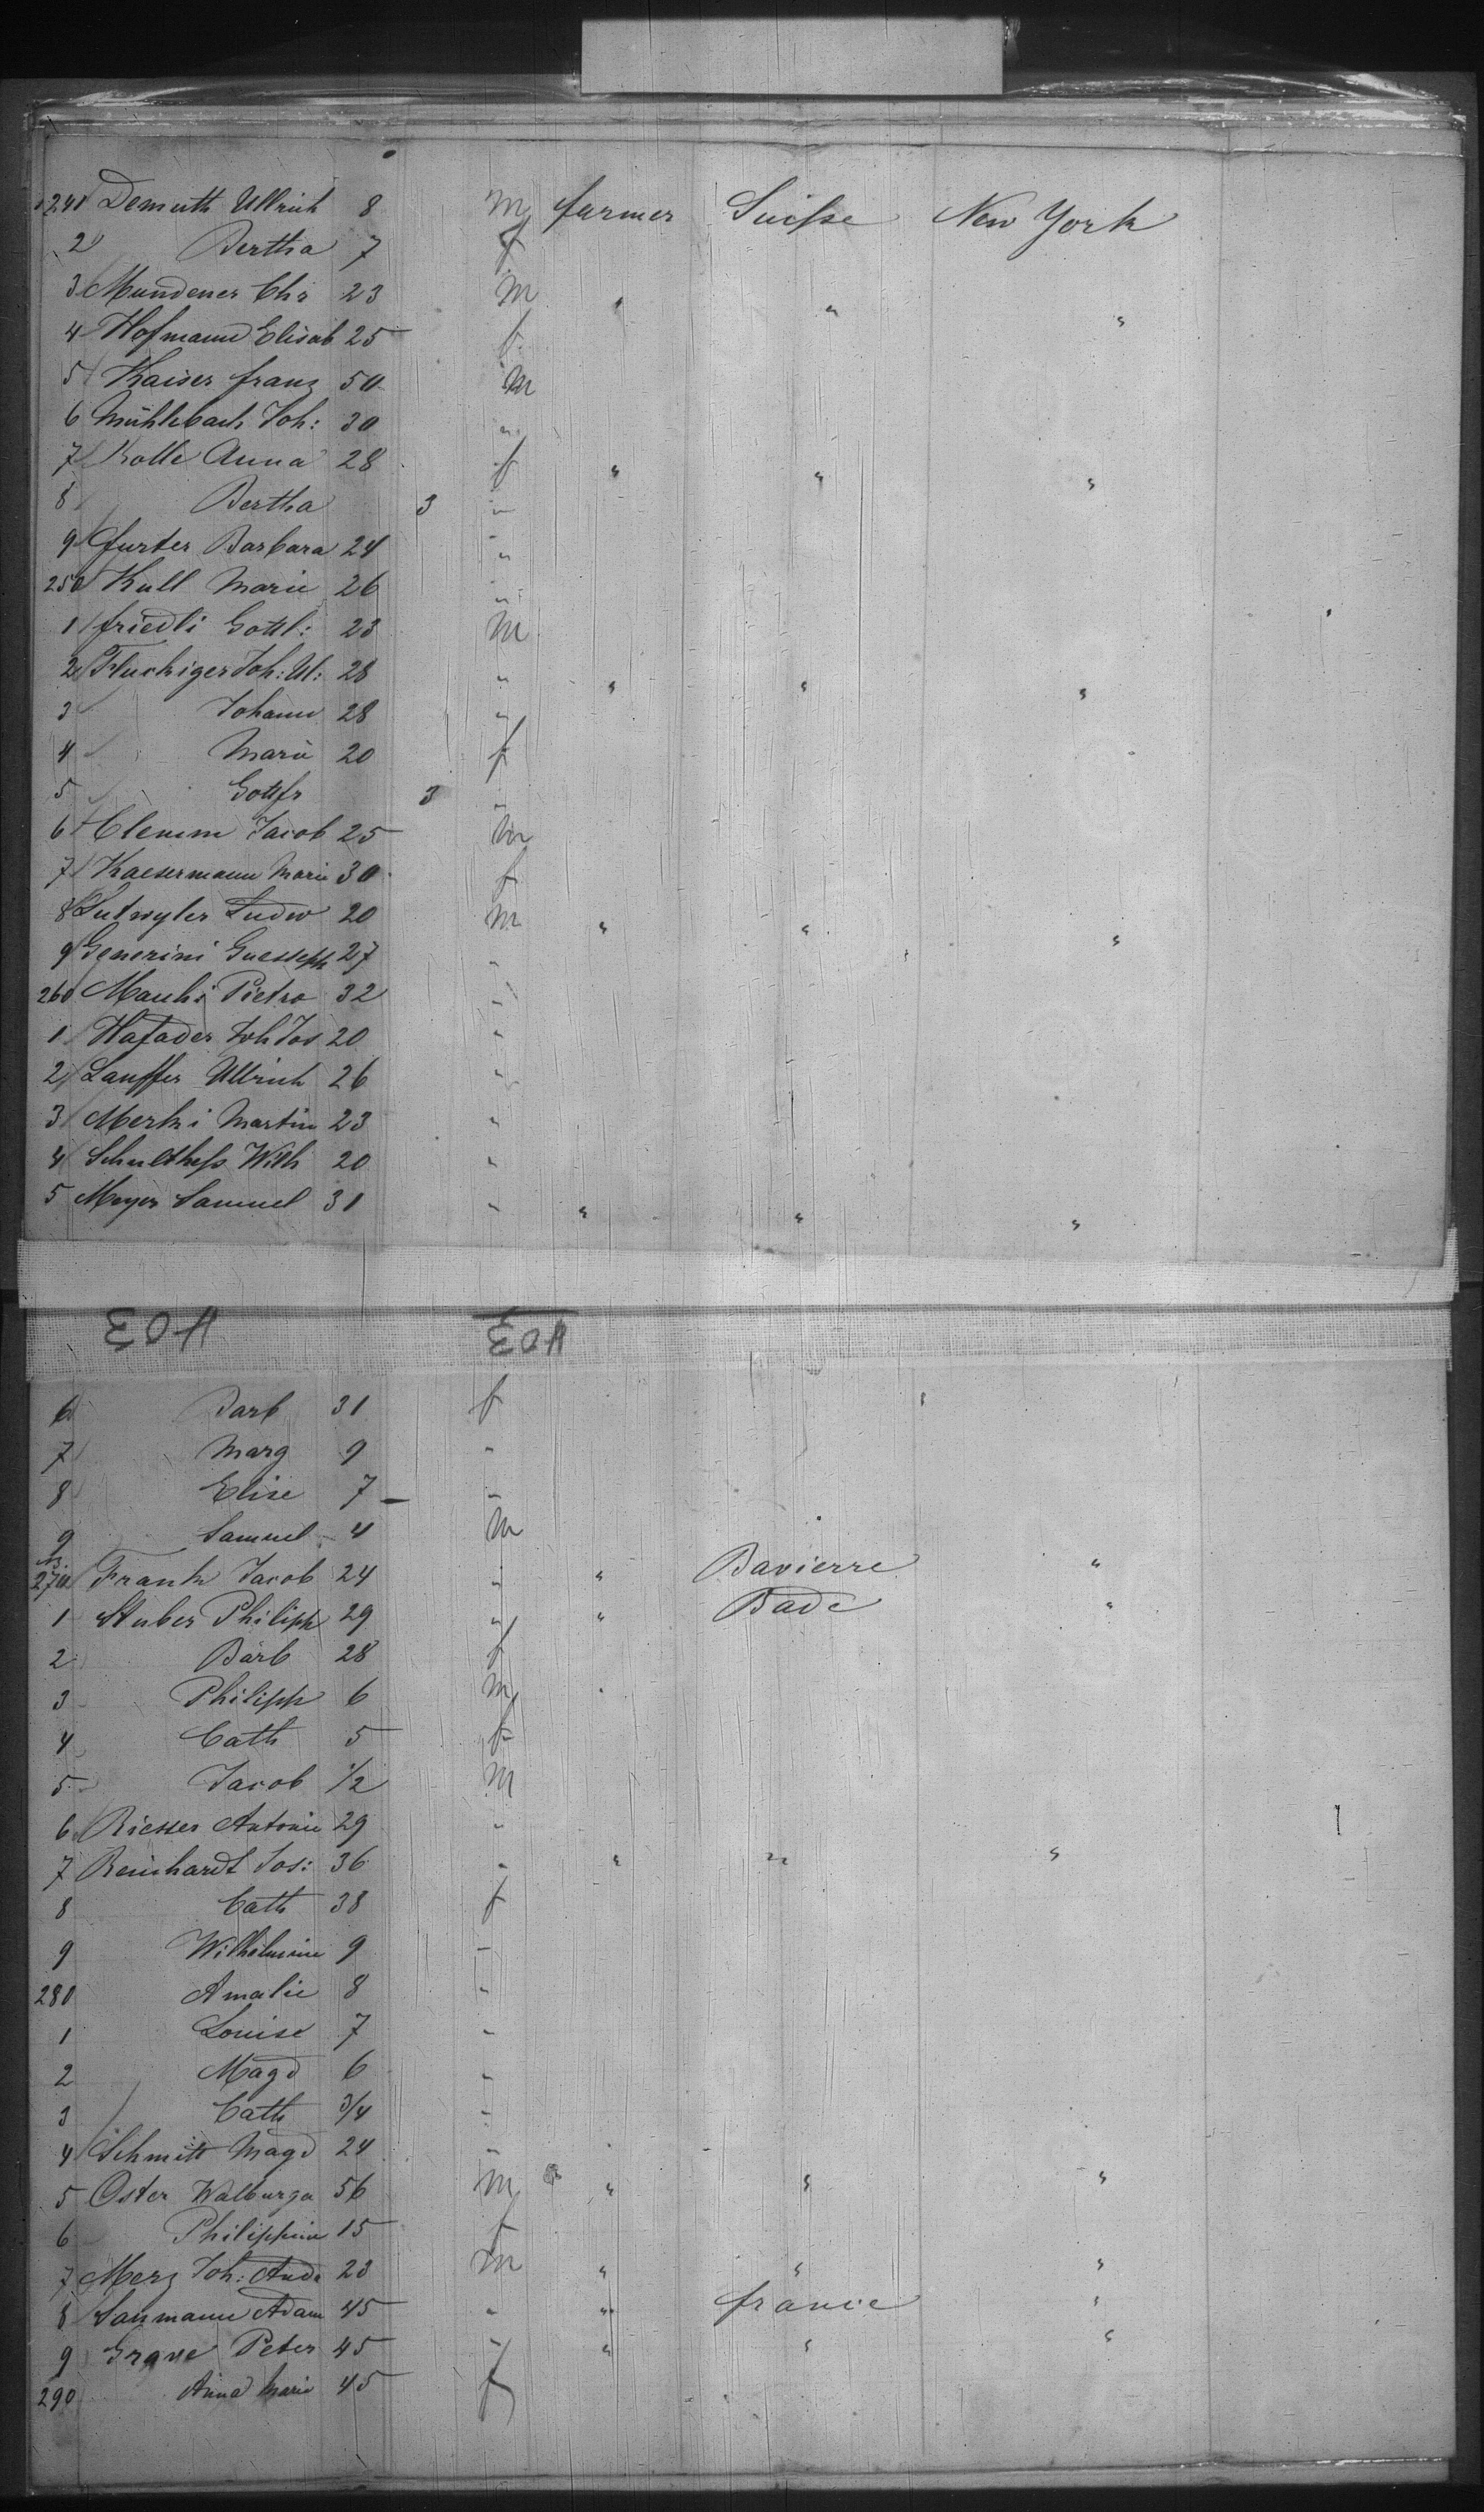 1241 Demuth Ullrich 8 M farmer Suisse New York
2 Bertha 7 f
3 Mundener Chr 23 M " " "
4 Hofmann Elisab 25 f
5 Kaiser franz 50 M
6 Mühlebach Joh: 30 "
7 Kolle Anna 28 f " " "
8 Bertha 3 "
9 furter Barbara 24 "
250 Kull Marie 26 "
1 friedli Gottl: 23 M
2 Fluckiger Joh: Ul: 28 " " " "
3 Johann 28 "
4 Marie 20 f
5 Gottfr 3 "
6 Clemm Jacob 25 M
7 Kaesermann Marie 30 f
8 Lutwyler Ludw 20 M " " "
9 Generini 27 "
260 Pietro 32 "
1 Joh Jos 20 "
2 Lauffer Ullrich 26 "
3 Merki Martin 23 "
4 Schulthess Wilh 20 "
5 Meyer Samuel 31 " " " "
403 403
6 Barb 31 f
7 Marg 9 "
8 Elise 7 "
9 Samuel 4 M
270 Frank Jacob 24 " " Bavierre "
1 Stuber Philipp 29 " " Bade "
2 Barb 28 f
3 Philipp 6 M
4 Cath 5 f
5 Jacob 1/2 M
6 Riesser Antonie 29 "
7 Reinhardt Jos: 36 " " " "
8 Cath 38 f
9 Wilhelmine 9 "
280 Amalie 8 "
1 Louise 7 "
2 Magd 6 "
3 Cath 3/4 "
4 Schmitt Magd 24 "
5 Oster Walburga 56 M " " "
6 Philippine 15 f
7 Merz Joh: Andr 23 M " " "
8 Adam 45 " " france "
9 Grave Peter 45 " " " "
290 Anna Marie 45 f